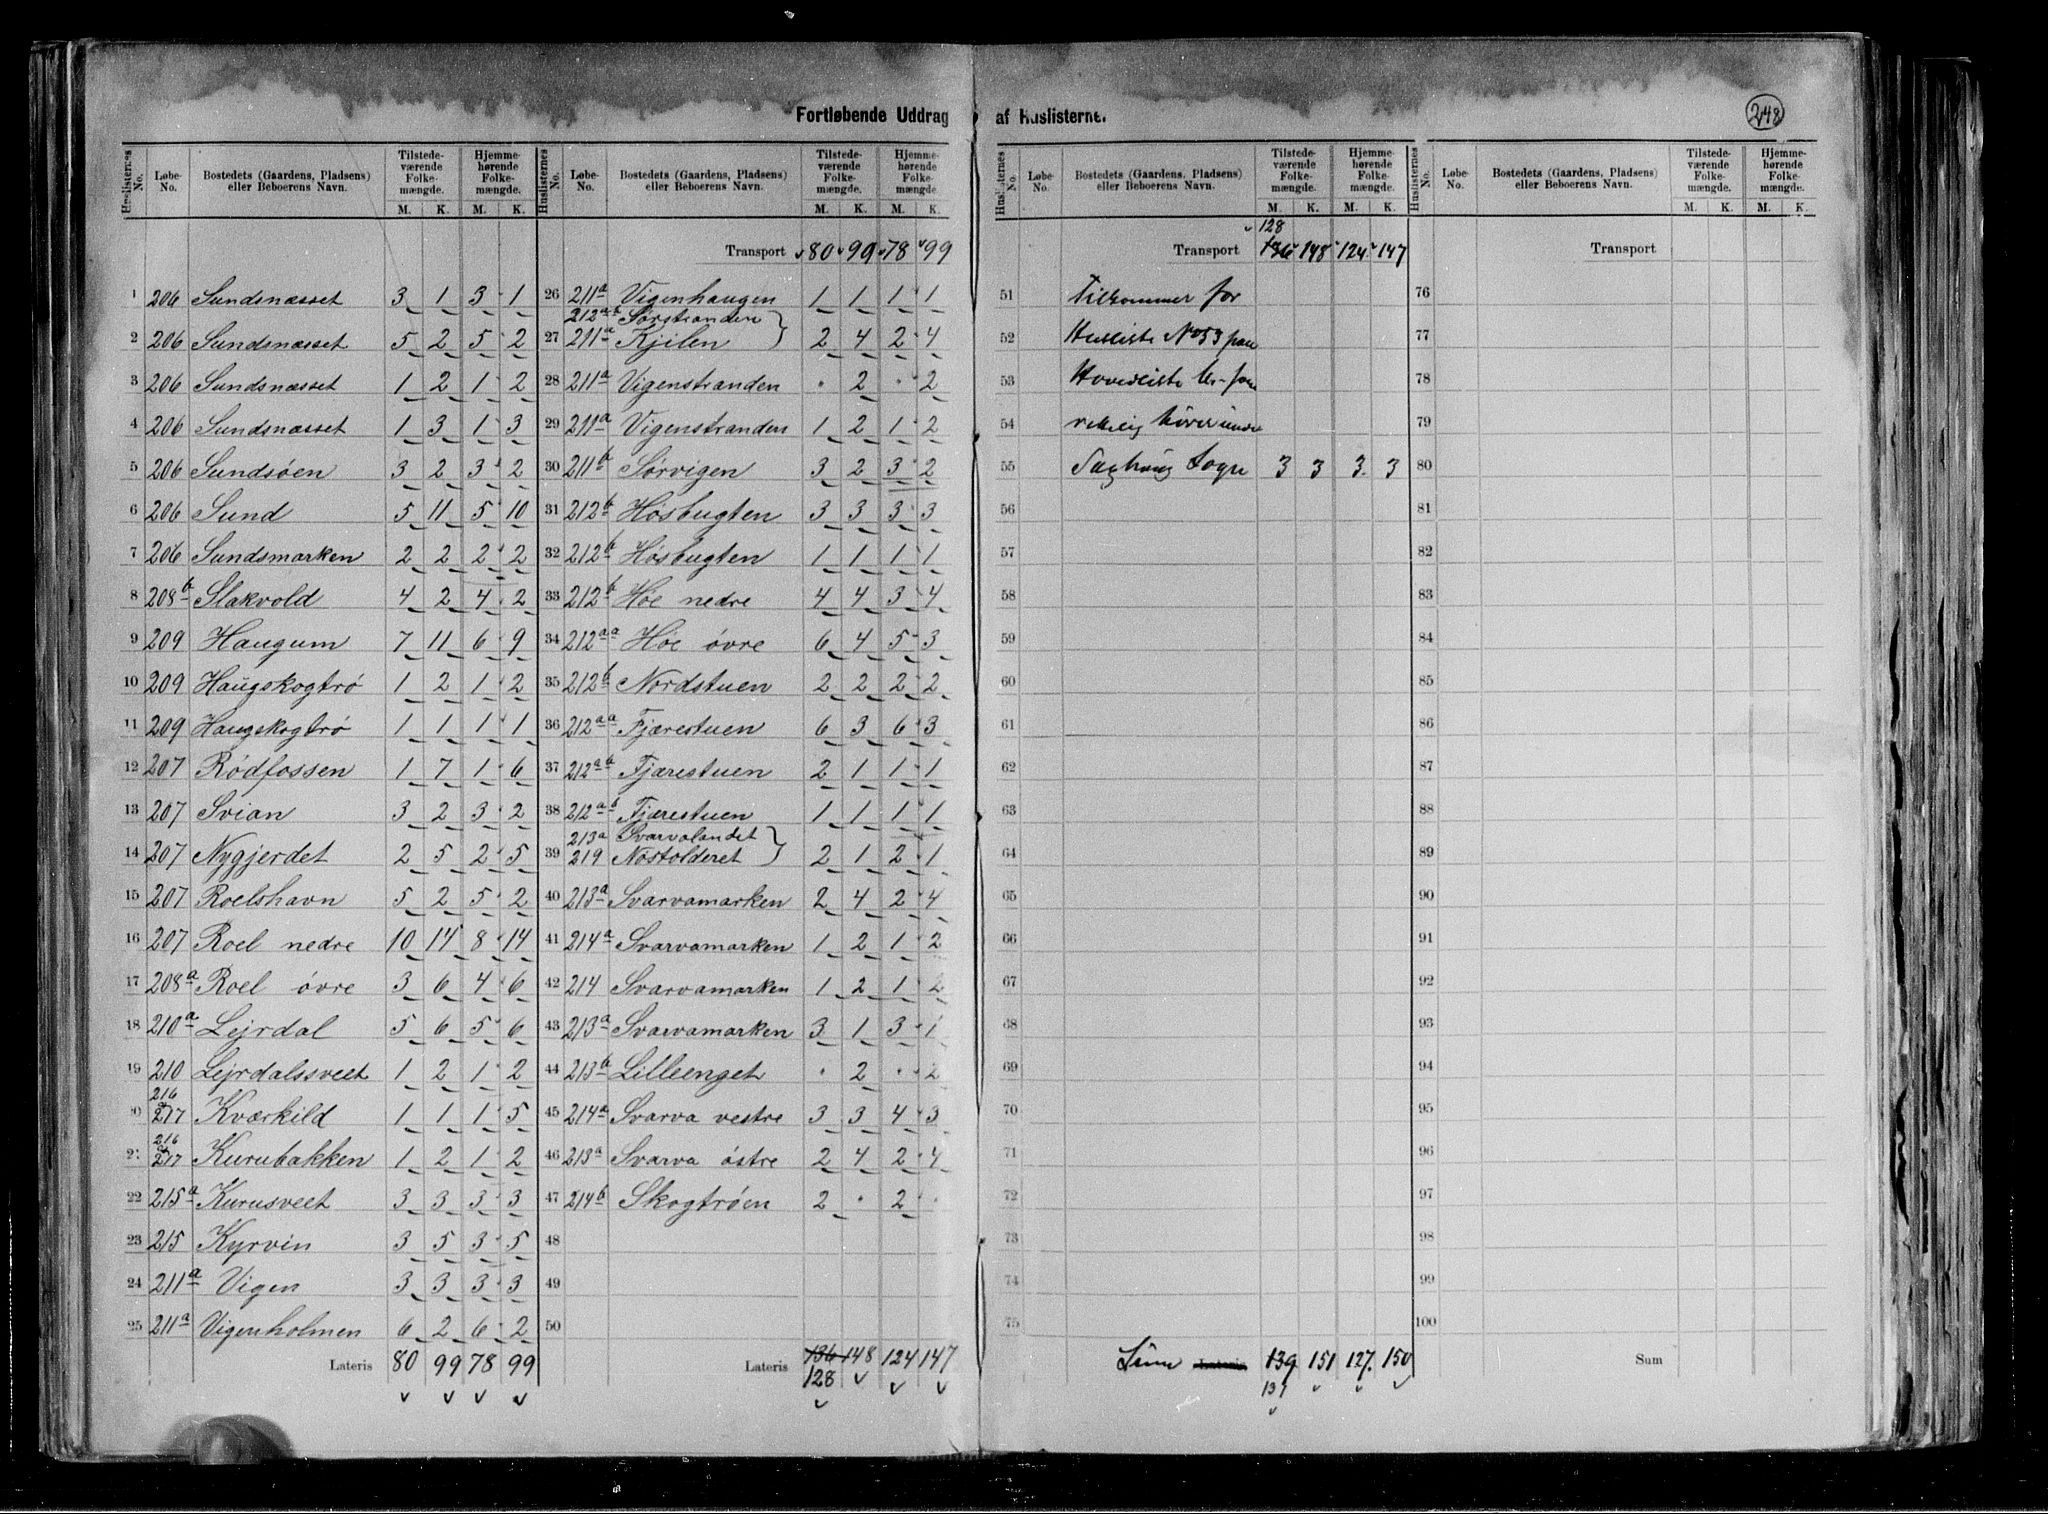 Fortløbende Uddrag af Huslisterne.
248
Huslisternes No. Løbe-No. Bostedets (Gaardens, Pladsens) eller Beboerens Navn. Tilstedeværende Folkemængde. M. K. Hjemmehørende Folkemængde. M. K.
1 206 Sundsnæsset 3 1 3 1
2 206 Sundsnæsset 5 2 5 2
3 206 Sundsnæsset 1 2 1 2
4 206 Sundsnæsset 1 3 1 3
5 206 Sundsöen 3 2 3 2
6 206 Sund 5 11 5 10
7 206 Sundsmarken 2 2 2 2
8 208b Slakvold 4 2 4 2
9 209 Haugum 7 11 6 9
10 209 Haugskogtrø 1 2 1 2
11 209 Haugskogtrø 1 1 1 1
12 207 Rödfossen 1 7 1 6
13 207 Svian 3 2 3 2
14 207 Nygjerdet 2 5 2 5
15 207 Roelshavn 5 2 5 2
16 207 Roel nedre 10 14 8 14
17 208a Roel övre 3 6 4 6
18 210a Lejrdal 5 6 5 6
19 210 Lejrdalssveet 1 2 1 2
20 216 217 Kværkild 1 1 1 5
21 216 217 Kurubakken 1 2 1 2
22 215a Kurusveet 3 3 3 3
23 215 Kyrvin 3 5 3 5
24 211a Vigen 3 3 3 3
25 211a Vigenholmen 6 2 6 2
Lateris 80 99 78 99
Huslisternes No. Løbe-No. Bostedets (Gaardens, Pladsens) eller Beboerens Navn. Tilstedeværende Folkemængde. M. K. Hjemmehørende Folkemængde. M. K.
Transport 80 99 78 99
26 211a Vigenhaugen 1 1 1 1
212aa Sörstranden
27 211a Kjilen 2 4 2 4
28 211a Vigenstranden · 2 · 2
29 211a Vigenstranden 1 2 1 2
30 211b Sörvigen 3 2 3 2
31 212b Hösbugten 3 3 3 3
32 212b Hösbugten 1 1 1 1
33 212b Höe nedre 4 4 3 4
34 212aa Höe övre 6 4 5 3
35 212b Nordstuen 2 2 2 2
36 212aa Fjærestuen 6 3 6 3
37 212ab Fjærestuen 2 1 1 1
38 212ab Fjærestuen 1 1 1 1
213a Svarvalandet
39 219 Nöstolderet 2 1 2 1
40 213a Svarvamarken 2 4 2 4
41 214a Svarvamarken 1 2 1 2
42 214 Svarvamarken 1 2 1 2
43 213a Svarvamarken 3 1 3 1
44 213b Lilleenget · 2 · 2
45 214a Svarva vestre 3 3 4 3
46 213a Svarva östre 2 4 2 4
47 214b Skogtröen 2 · 2 ·
48
49
50
Lateris 136 148 124 147
128
Huslisternes No. Løbe-No. Bostedets (Gaardens, Pladsens) eller Beboerens Navn. Tilstedeværende Folkemængde. M. K. Hjemmehørende Folkemængde. M. K.
128
Transport 136 148 124 147
51 Tilkommer for
52 Husliste No 53 paa
53 Hovedliste
54
55 Sogn 3 3 3 3
56
57
58
59
60
61
62
63
64
65
66
67
68
69
70
71
72
73
74
75
Sum Lateris 139 151 127 150
131
Huslisternes No. Løbe-No. Bostedets (Gaardens, Pladsens) eller Beboerens Navn. Tilstedeværende Folkemængde. M. K. Hjemmehørende Folkemængde. M. K.
Transport
76
77
78
79
80
81
82
83
84
85
86
87
88
89
90
91
92
93
94
95
96
97
98
99
100
Sum